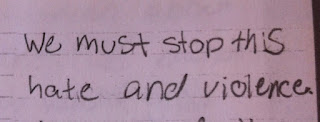 We must stop this
hate and violence.